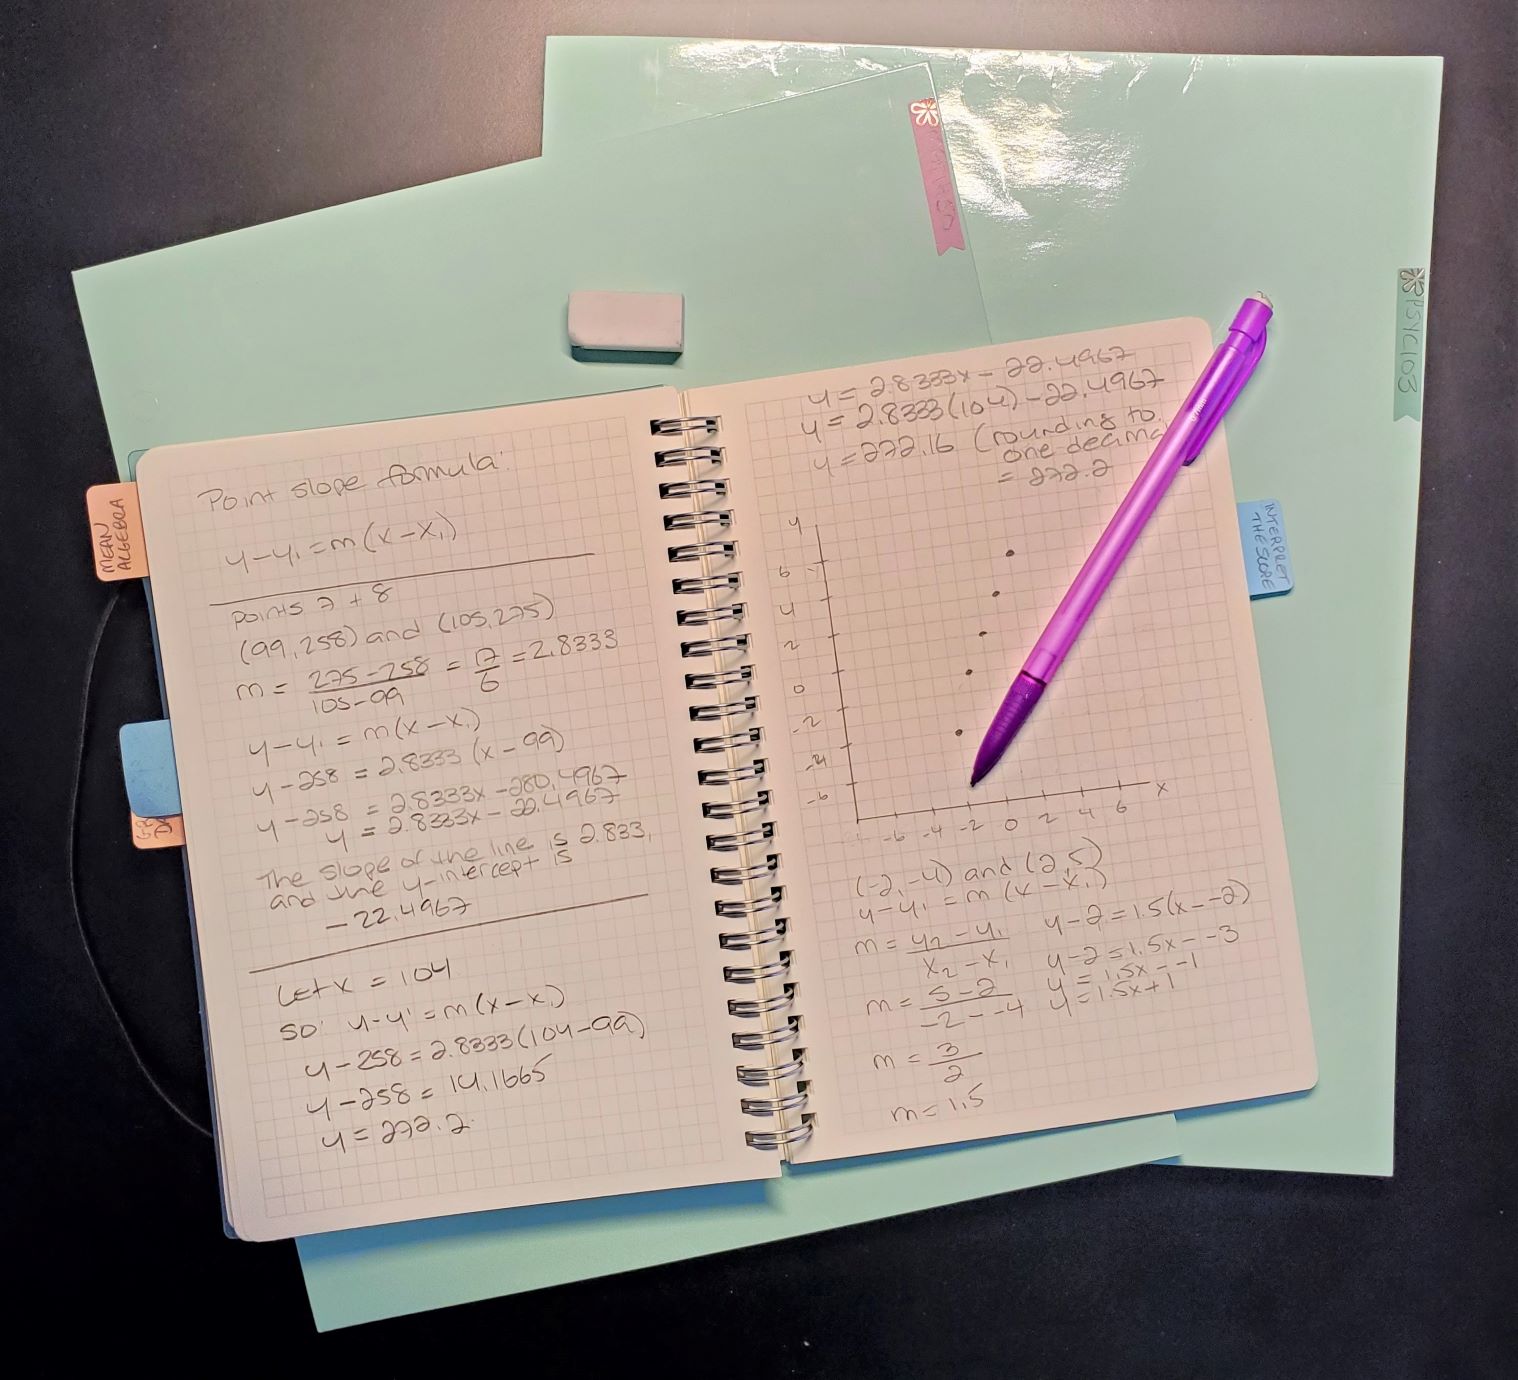 Point slope formula:
y-y₁ = m(x-x₁)
points 7 + 8
(99,258) and (105,275)
m = 275-258 / 105-99 = 17/6 = 2.8333
y-y₁ = m(x-x₁)
y-258 = 2.8333 (x-99)
y-258 = 2.8333x - 280.4967
y = 2.8333x - 22.4967
The slope of the line is 2.833,
and the y-intercept is
-22.4967
Let x = 104
so: y-y' = m(x-x₁)
y-258 = 2.8333(104-99)
y-258 = 14.1665
y = 272.2
y = 2.8333x - 22.4967
y = 2.8333(104) - 22.4967
y = 272.16 (rounding to
one decimal
= 272.2
y
6
4
2
0
-2
-4
-6
-6 -4 -2 0 2 4 6 x
(-2,-4) and (2,5)
y-y₁ = m (x-x₁)
m = y₂-y₁ / x₂-x₁
m = 5-2 / -2--4
m = 3/2
m = 1.5
y-2 = 1.5(x--2)
y-2 = 1.5x--3
y = 1.5x--1
y = 1.5x+1
MEAN
ALGEBRA
INTERPRET
THE SCORE
PSYC103